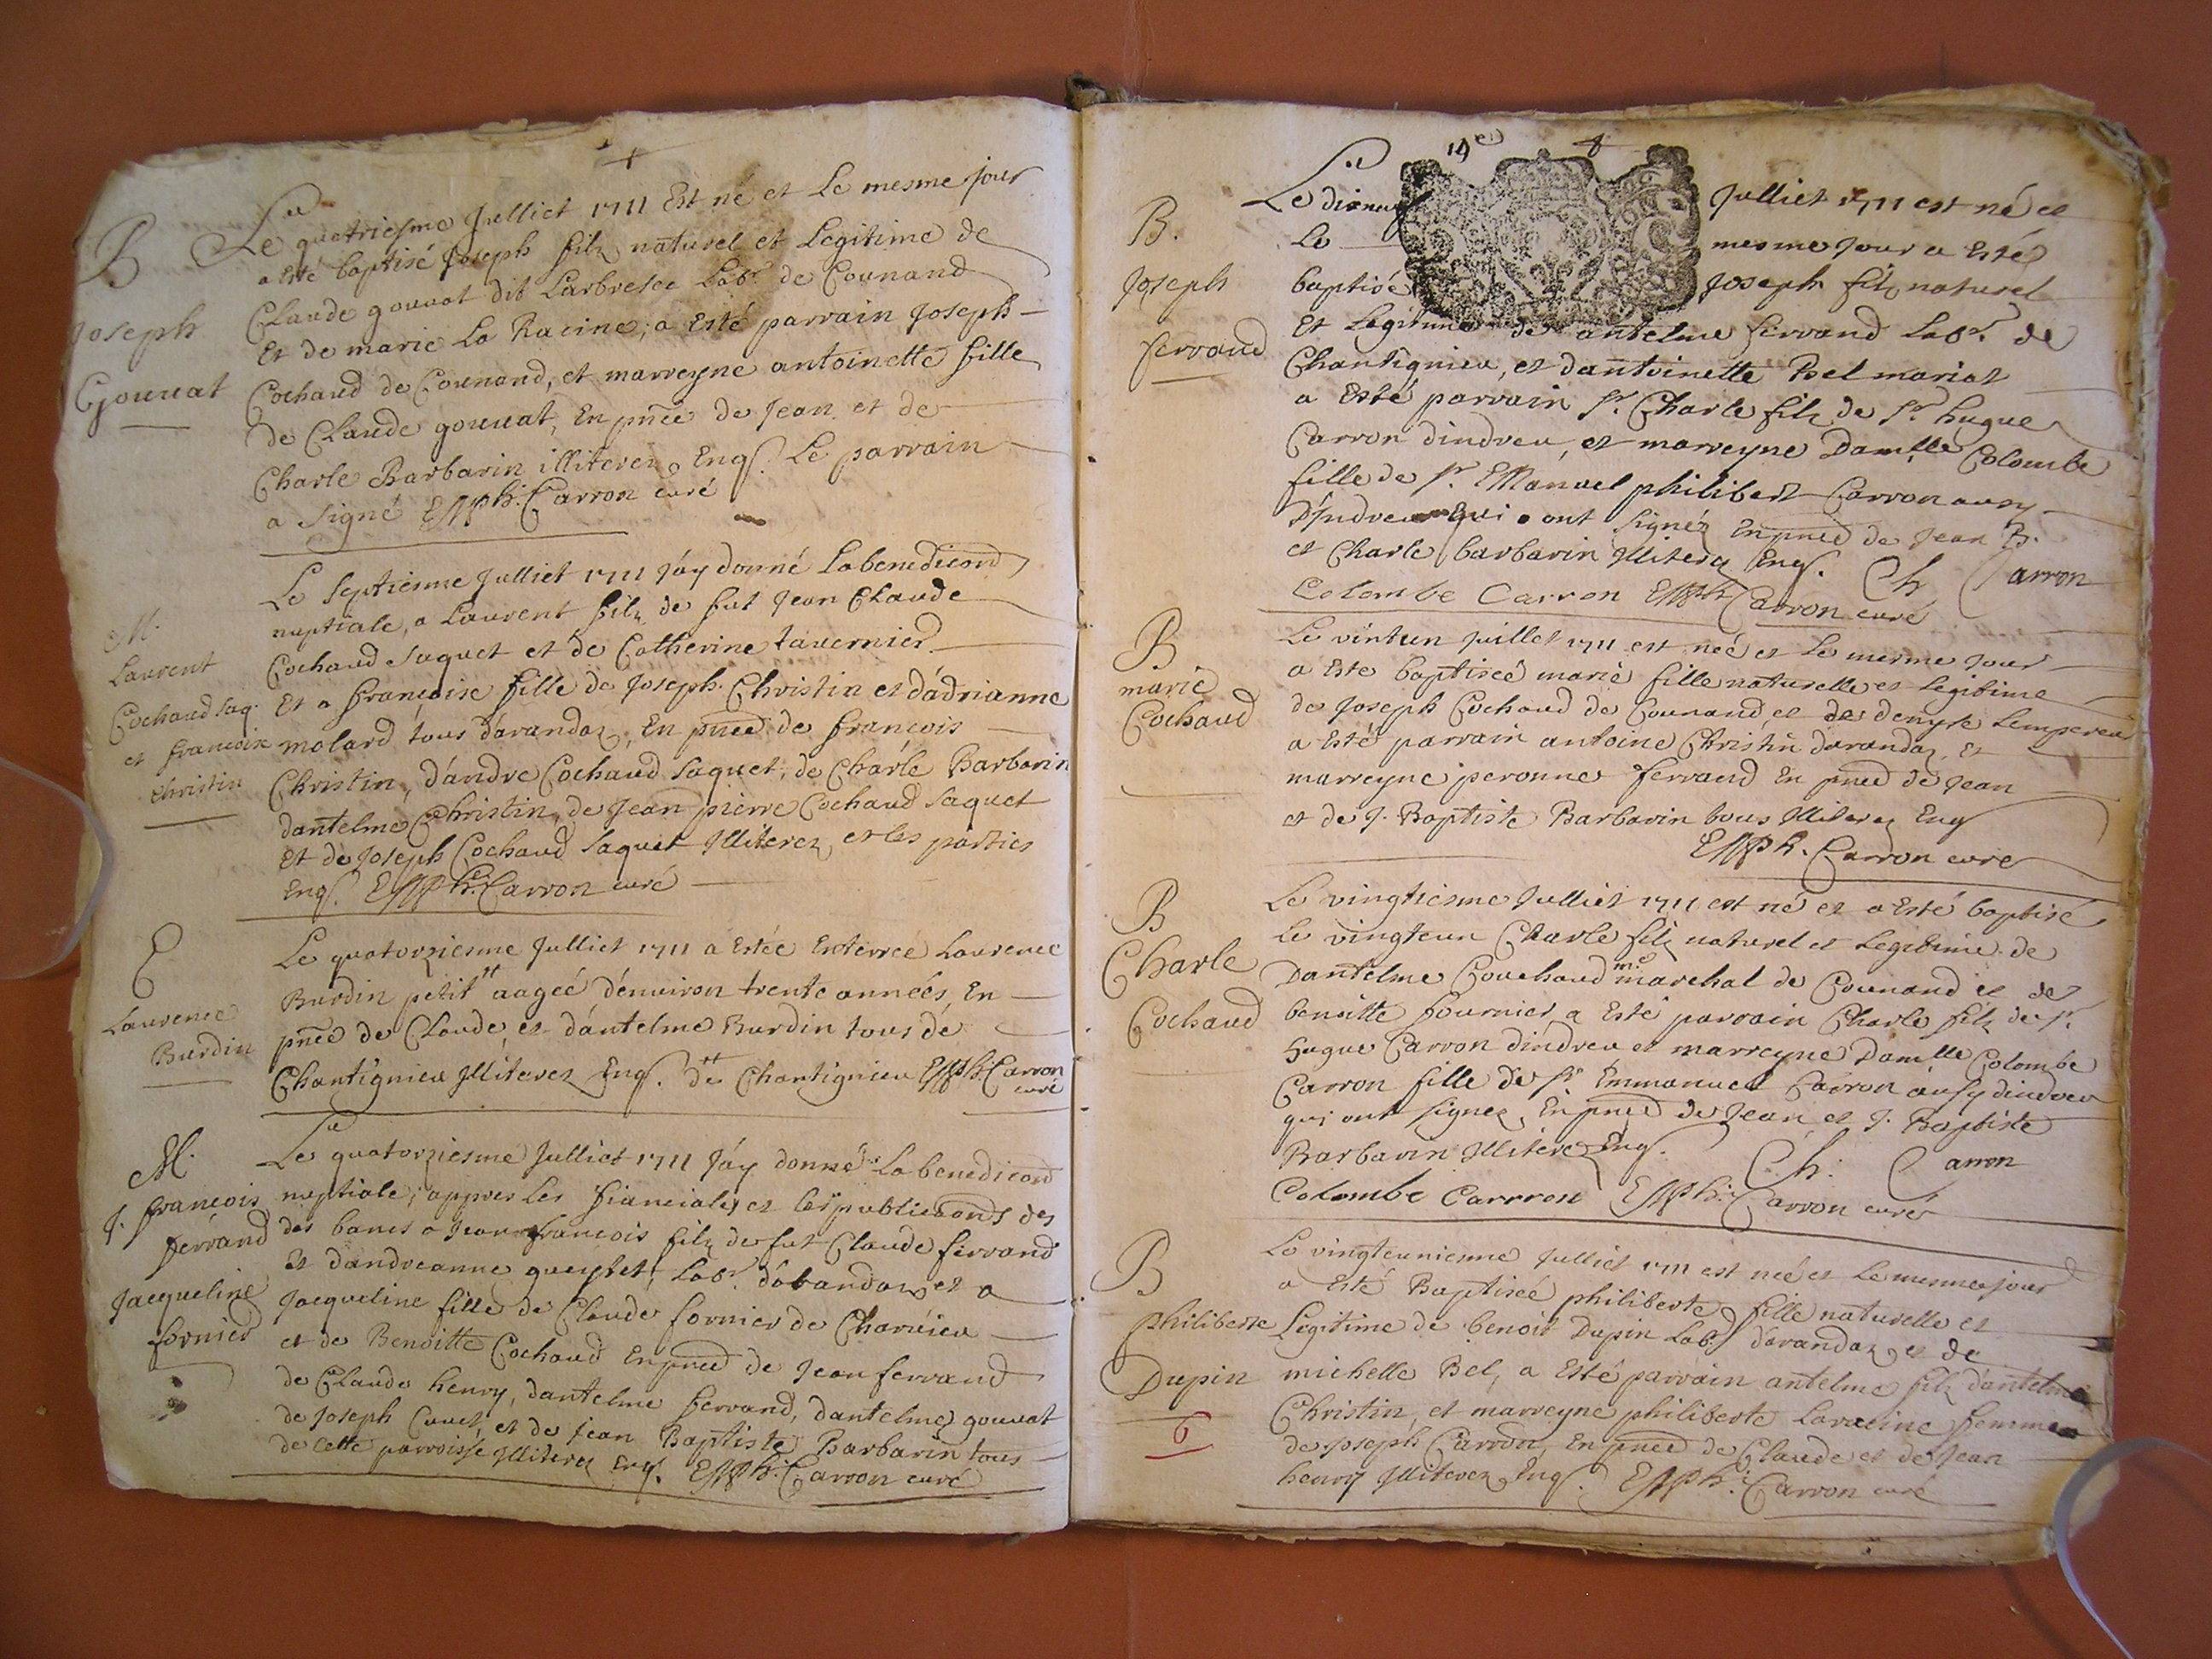 B
Joseph
Gouuat
Le quatriesme Julliet 1711 Est né et Le mesme jour
a Esté baptisé Joseph filz naturel et Legitime de
Claude gouuat dit Larbresce Labr de Counand
Et de marie La Racine, a Esté parrain Joseph
Cochaud de Counand, et marreyne antoinette fille
de Claude gouuat, En pnce de Jean et de
Charle Barbarin illiterez Enqs. Le parrain
a signé EMPh. Carron curé
M.
Laurent
Cochaud saq.
et francoise
christin
Le septiesme Julliet 1711 j'ay donné La benedicond
nuptiale, a Laurent filz de fut Jean Claude
Cochaud saquet et de Catherine tauernier
Et a francoise fille de Joseph Christin et d'adrianne
molard tous d'arandaz, En pnce de francois
Christin, d'andre Cochaud saquet, de Charle Barbarin
dantelme Christin, de Jean pierre Cochaud saquet
Et de Joseph Cochaud saquet Illiterez, et les parties
Enqs. EMPh. Carron curé
E
Laurence
Burdin
Le quatorziesme Julliet 1711 a Estée Enterrée Laurence
Burdin petit aagée d'enuiron trente années, En
pnce de Claude, et d'antelme Burdin tous de
Chantignieu Illiterez Enqs. de Chantignieu EMPh. Carron
curé
M.
J. francois
ferrand
Jacqueline
fornier
Le quatorziesme Julliet 1711 J'ay donné La benedicond
nuptiale, appres Les fiancialles et les publicaonds des
des bancs a Jean francois filz de fut Claude ferrand
Et dandreanne Labr d'arandaz et a
Jacqueline fille de Claude fornier de Charuieu
et de Benoitte Cochaud En pnce de Jean ferrand
de Claude henry, dantelme ferrand, dantelme gouuat
de Joseph Cuuet, et de jean Baptiste Barbarin tous
de cette parroisse Illiterez Enqs. EMPh. Carron curé
19e
B.
Joseph
ferrand
Le dixneuf Julliet 1711 est né et
Le mesme Jour a Esté
baptisé Joseph filz naturel
Et Legitime de antelme ferrand Labr. de
Chantignieu, et dantoinette Bel mariat
a Esté parrain sr. Charle filz de sr. hugue
Carron dindrieu, et marreyne Damlle Colombe
fille de sr. EManuel philibert Carron aussy
D'Indrieu qui ont signéz En pnce de Jean B.
et Charle barbarin Illiterez Enqs. Ch Carron
Colombe Carron EMPh Carron curé
B
marie
Cochaud
Le vintun juillet 1711 est neé et Le mesme Jour
a Este baptiseé marie fille naturelle et legitime
de Joseph Cochaud de Counand et de denyse Lempereur
a Esté parrain antoine Christin d'arandaz, Et
marreyne peronne ferrand En pnce de Jean
et de J. Baptiste Barbarin tous Illiterez Enq
EMPh. Carron curé
B
Charle
Cochaud
Le vingtiesme Julliet 1711 est né et a Esté baptisé
Le vingteun Charle filz naturel et Legitime de
Dantelme Couchaud me marechal de Counand et de
benoitte fournier, a Esté parrain Charle filz de sr.
hugue Carron d'indrieu et marreyne Damlle Colombe
Carron fille de sr Emmanuel Carron aussy dindrieu
qui ont signez, En pnce de Jean et J. Baptiste
Barbarin Illiterez Enqs. Ch. Carron
Colombe Carrron EMPh. Carron curé
B
philiberte
Dupin
6
Le vingteuniesme Julliet 1711 est neé et Le mesme jour
a Esté Baptiseé philiberte fille naturelle et
Legitime de benoit Dupin Labr. d'arandaz et de
michelle Bel, a Esté parrain antelme filz d'antelme
Christin, et marreyne philiberte Laracine femme
de Joseph Carron, En pnce de Claude et de Jean
henry Illiterez Enqs. EMPh. Carron curé